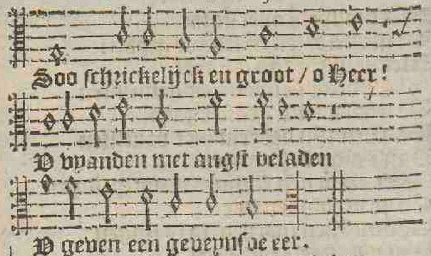 Soo schrickelijck en groot / o Heer!
D vyanden met angst beladen
D geven een geveynsde eer.